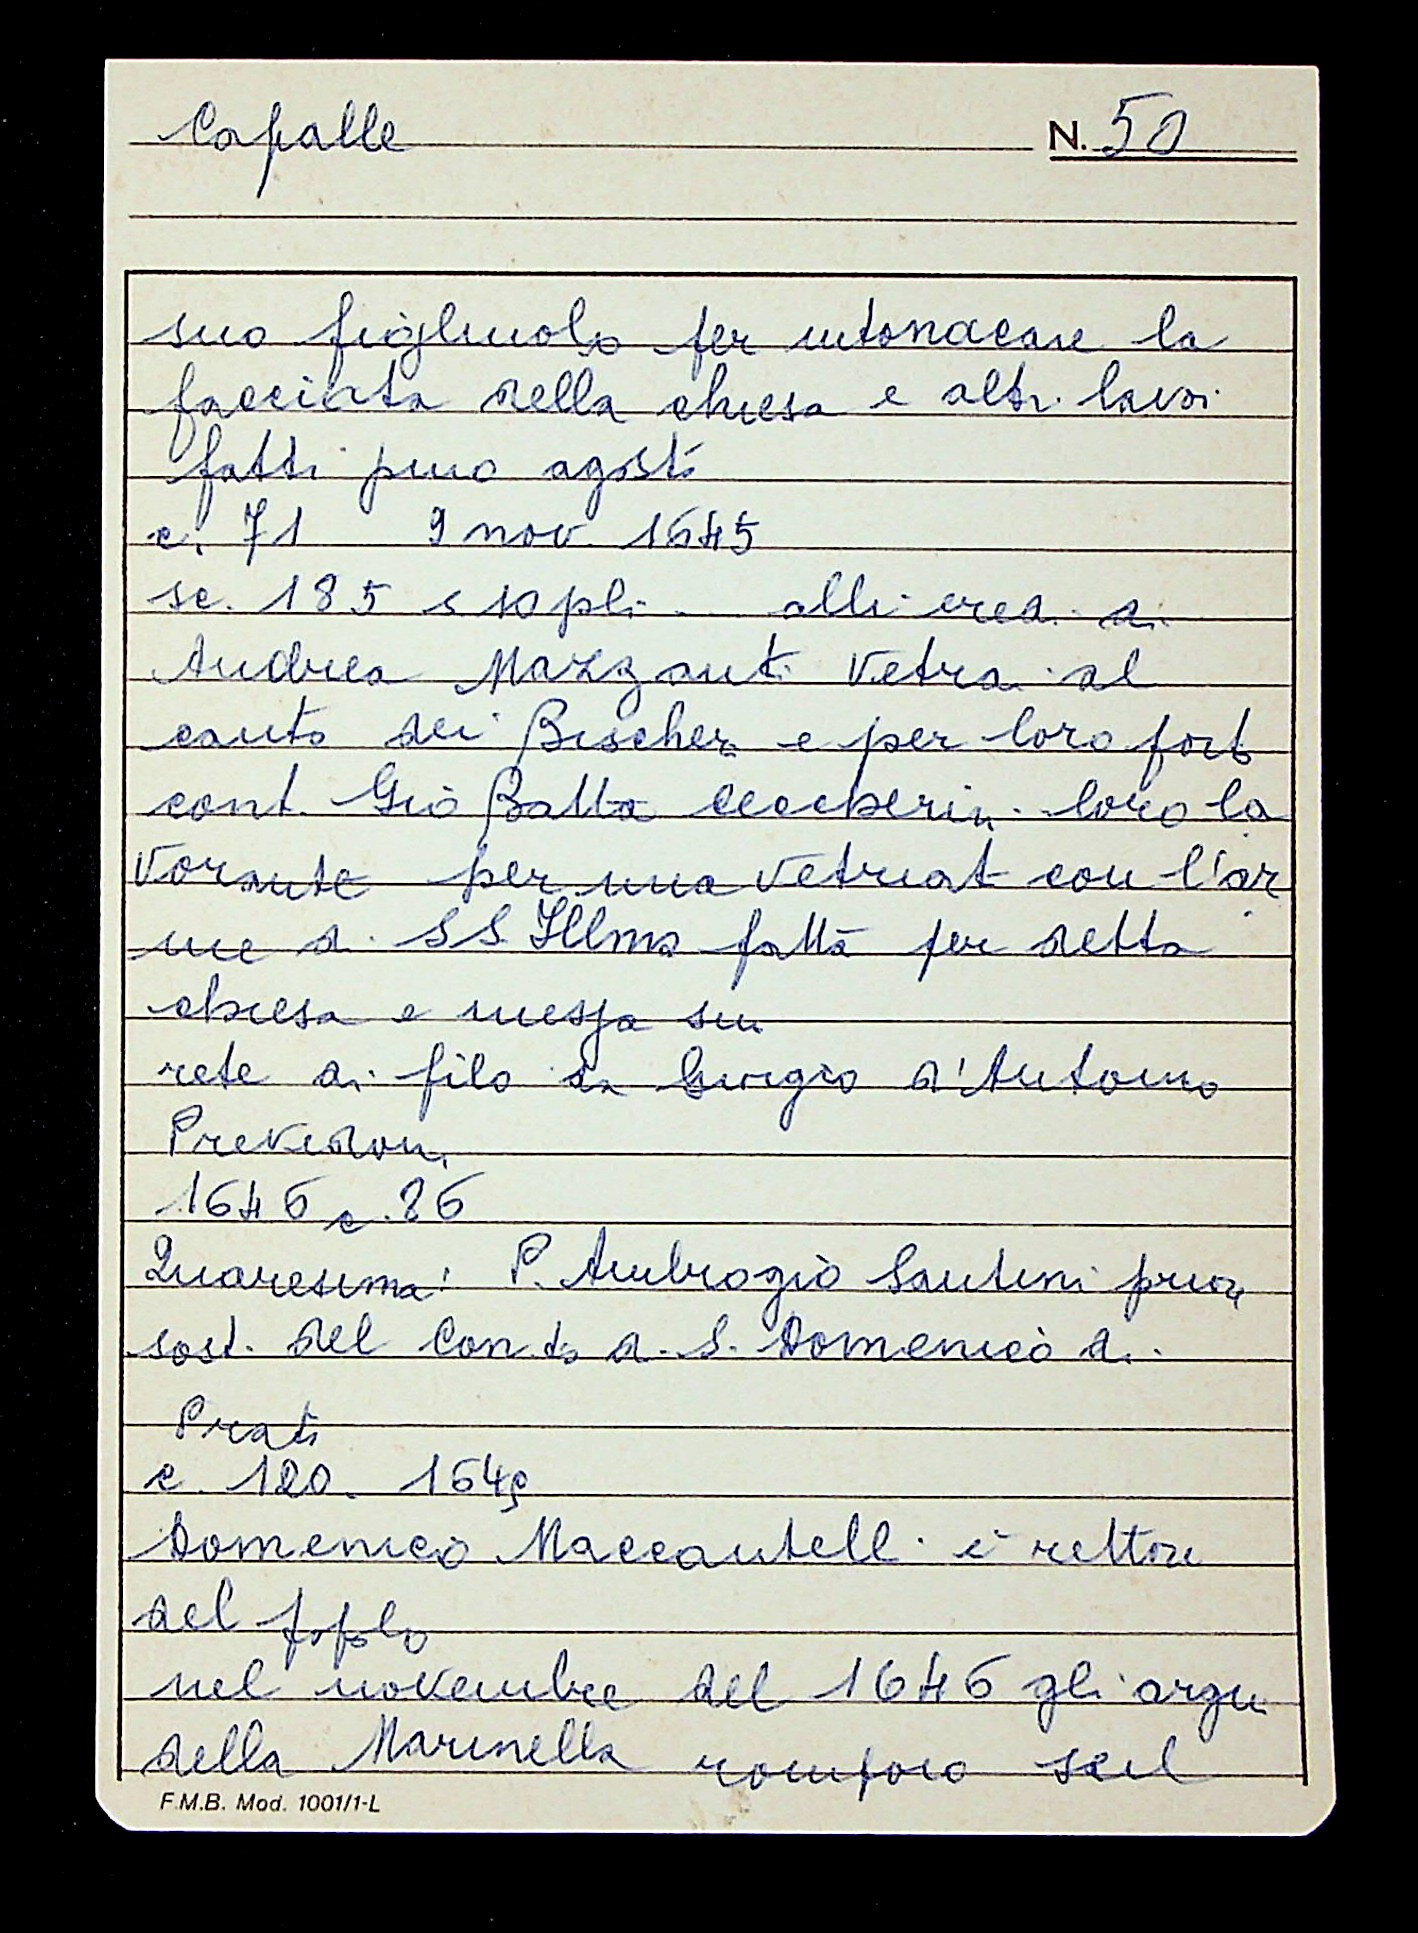 Capalle N. 50
suo figliuolo per intonacare la
facciata della chiesa e altri lavori
fatti pmo agosto
c. 71 9 nov. 1645
sc. 185 s 10 pli alli eredi di
Andrea Mazzanti Vetrai al
canto dei Bischeri e per loro porto
cont. Gio Batta Ceccherini loro la
vorante per una vetriata con l'ar
me di SS. Illma fatta per detta
chiesa e messa su
rete di filo da Giorgio d'Antonio
Prevedoni
1646 c. 86
Quaresima: P. Ambrogio Santini prior
sost. del Conto di S. Domenico di
Prato
c. 120. 1649
Domenico Maccantelli è rettore
del popolo
nel novembre del 1646 gli argini
della Marinella rompono
F.M.B. Mod. 1001/1-L